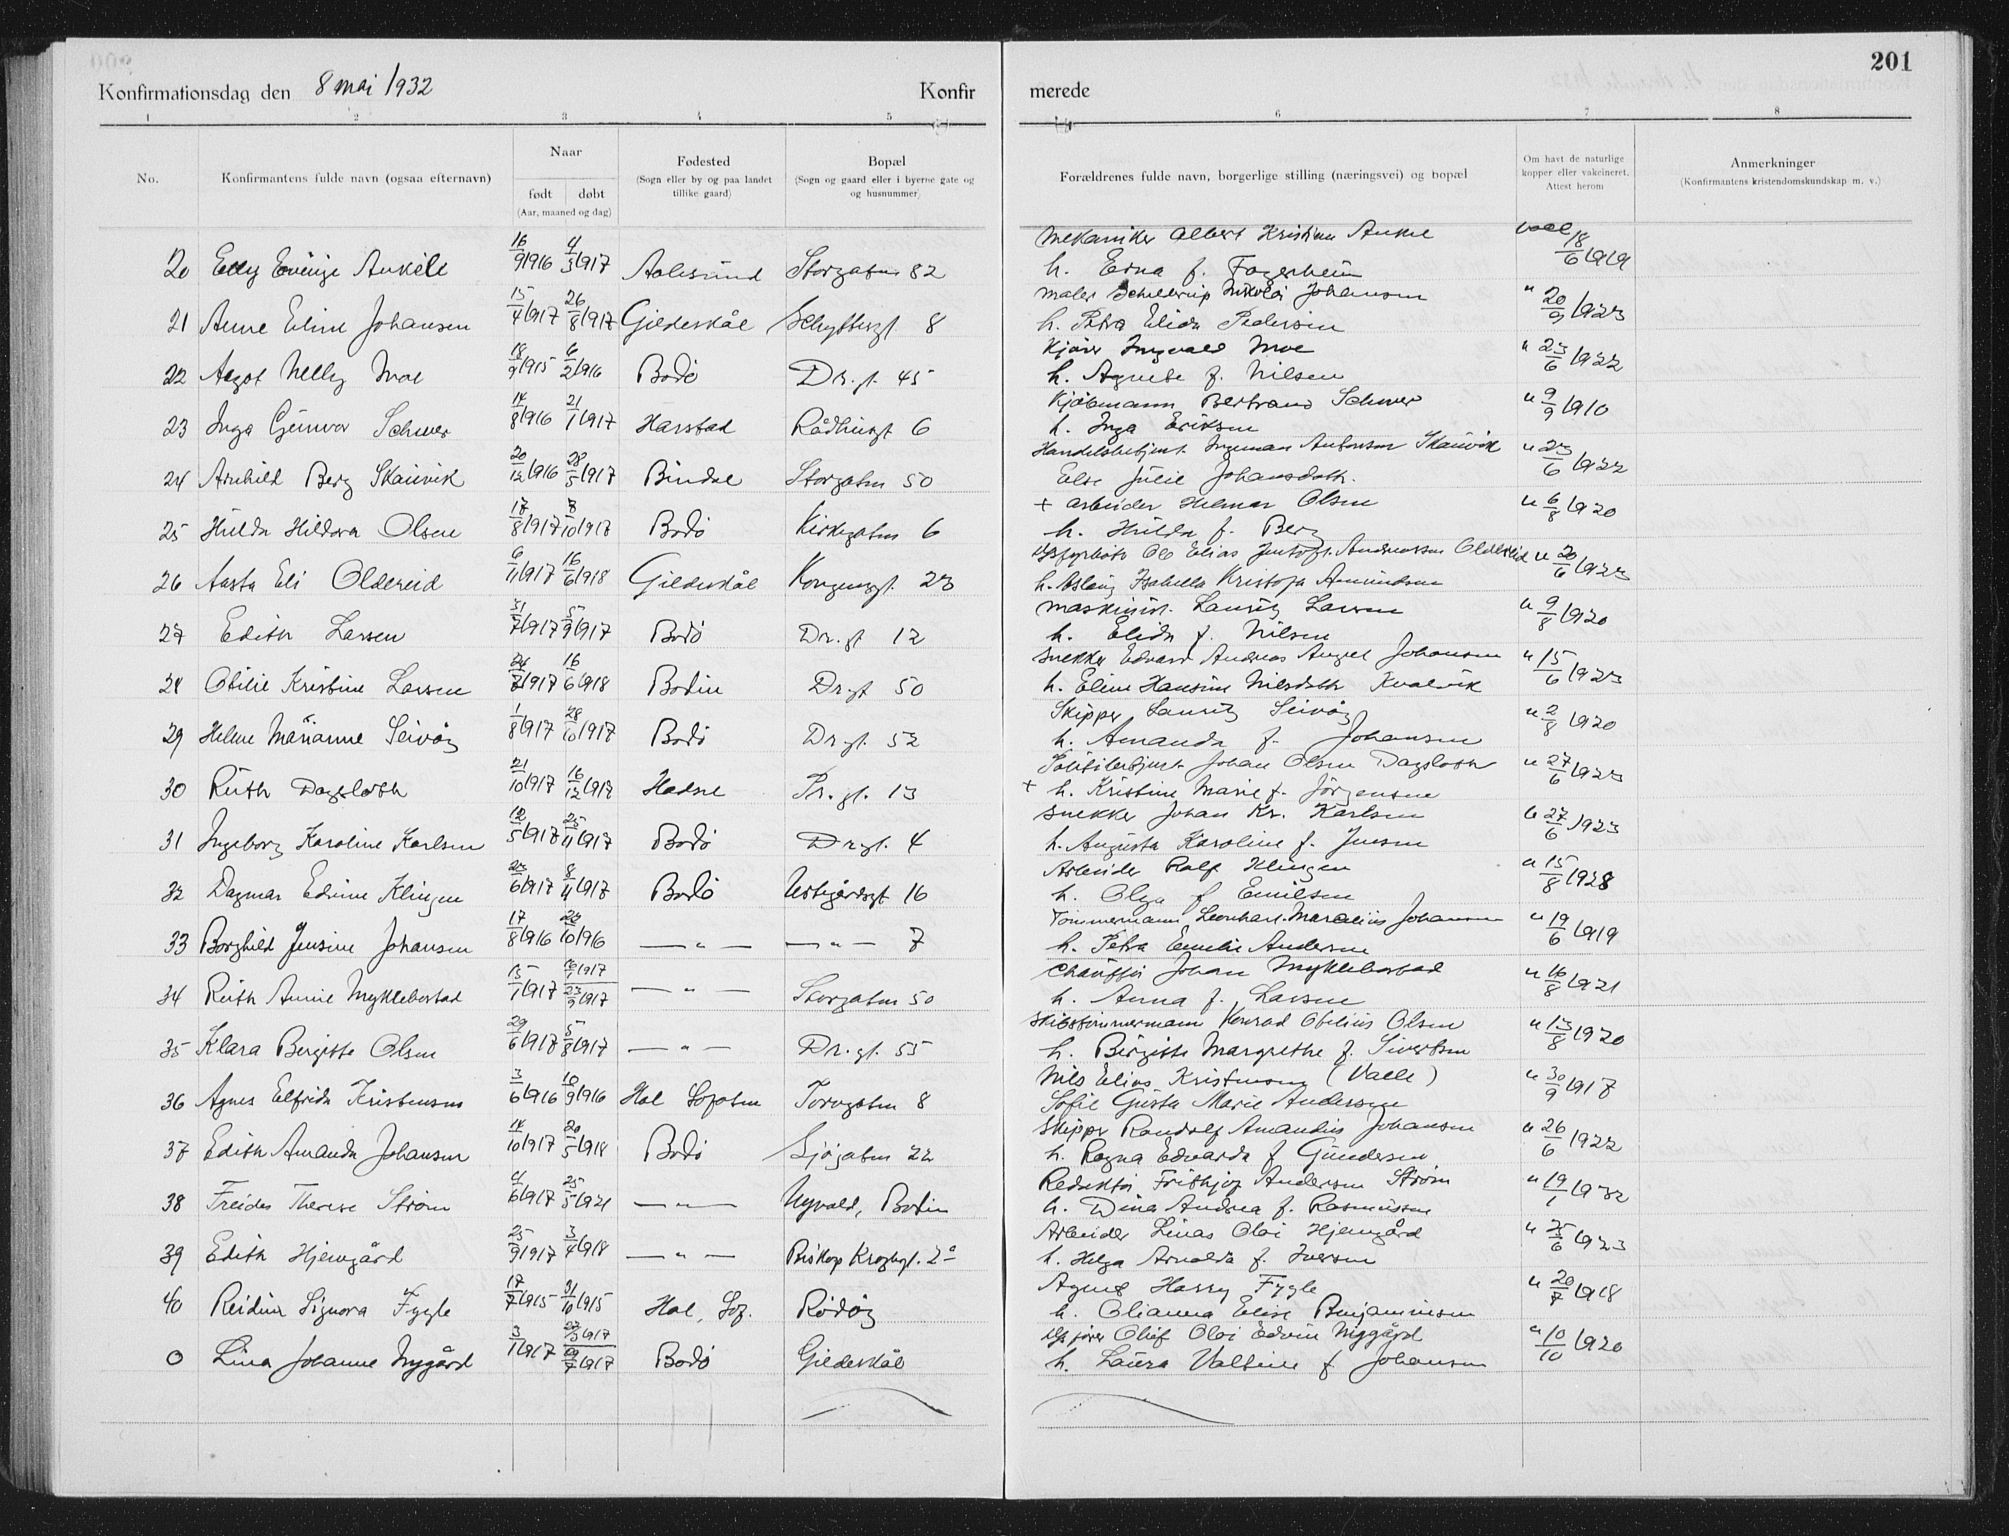 201
Konfirmationsdag den 8 mai 1932 Konfir merede
1 2 3 4 5 6 7 8
No. Konfirmantens fulde navn (ogsaa efternavn) Naar født døbt (Aar, maaned og dag) Fødested (Sogn eller by og paa landet tillike gaard) Bopæl (Sogn og gaard eller i byerne gate og og husnummer) Forældrenes fulde navn, borgerlige stilling (næringsvei) og bopæl Om havt de naturlige kopper eller vakcineret. Attest herom Anmerkninger (Konfirmantens kristendomskundskap m. v.)
Mekaniker Albert Kristian
20 Elly 16/9 1916 4/3 1917 Aalesund Storgaten 82 h. Edna f. Fagerheim 18/6 1919
Maler Schelderup Nikolai Johansen
21 Anne Eline Johansen 15/4 1917 26/8 1917 Gildeskål Schyttersgt. 8 h. Petra Elida Pedersen " 20/9 1923
Kjører Ingvald Moe
22 Aagot Nelly Moe 18/9 1915 6/2 1916 Bodø Dr. gt. 45 h. Agnete f. Nilsen " 23/6 1922
Kjøbmann Bertrand
23 Inga Gunvor 14/8 1916 21/1 1917 Harstad Rådhusgt 6 h. Inga Eriksen " 9/9 1910
Handelsbetjent Ingeman Antonsen Skauvik
24 Arnhild Berg Skauvik 20/12 1916 28/5 1917 Bindal Storgaten 50 Else Julie Johansdatt. " 23/6 1922
+ arbeider Helmer Olsen
25 Hulda Hildora Olsen 17/8 1917 7/10 1917 Bodø Kirkegaten 6 h. Hulda f. Berg " 6/8 1920
Ole Elias Andreassen Oldereid
26 Aasta Eli Oldereid 6/11 1917 16/6 1918 Gildeskål Kongensgt. 23 h. Aslaug Isabella Kristofa Amundsen " 20/6 1923
Maskinist. Lauritz Larsen
27 Edith Larsen 31/7 1917 5/9 1917 Bodø Dr. gt 12 h. Elida f. Nilsen " 9/8 1920
Snekker Edvard Andreas Johansen
28 Otilie Kristine Larsen 1917 16/6 1918 Bodin Dr. gt 50 h. Eline Hansine Nilsdatt Kvalvik " 15/6 1923
Skipper Lauritz Seivåg
29 Helene Marianne Seivåg 1/8 1917 28/10 1917 Bodø Dr. gt. 52 h. Amanda f. Johansen " 2/8 1920
Politibetjent Johan Olsen Dagsloth
30 Ruth Dagsloth 21/10 1917 16/12 1917 Hadsel Pr. gt. 13 + h. Kristine Marie f. Jörgensen " 27/6 1923
Snekker Johan Kr. Karlsen
31 Ingeborg Karoline Karlsen 12/5 1917 25/11 1917 Bodø Dr. gt. 4 h. Augusta Karoline f. Jensen " 27/6 1923
Arbeider Rolf Klingen
32 Dagmar Edvine Klingen 23/6 1917 8/11 1917 Bodø 16 h. Olga f Emilsen " 15/8 1928
Tömmermann Leonhart Marselius Johansen
33 Borghild Jensine Johansen 17/8 1916 22/10 1916 — " — — " — 7 h. Petra Emelie Andersen " 19/6 1919
Chauffør Johan Myklebostad
34 Ruth Annie Myklebostad 15/1 1917 16/1 1917 23/9 1917 — " — Storgaten 50 h. Anna f. Larsen " 16/8 1921
Skibstømmermann Konrad Otelius Olsen
35 Klara Bergitte Olsen 29/6 1917 5/8 1917 — " — Dr. gt. 55 h. Birgitte Margrethe f. Sivertsen " 13/8 1920
Nils Elias Kristensen (Valle)
36 Agnes Elfrida Kristensen 3/6 1916 10/9 1916 Hol Lofoten Torvgaten 8 Sofie Gusta Marie Andersen " 30/9 1917
Skipper Randolf Amandus Johansen
37 Edith Amanda Johansen 14/10 1917 20/5 1918 Bodø Sjøgaten 22 h. Ragna Edvarda f Gundersen " 26/6 1922
Redaktør Frithjof Andersen Strøm
38 Freidis Therese Strøm 4/6 1917 25/5 1921 — " — Nyvold, Bodin h. Dina Andrea f. Rasmussen " 19/1 1932
Arbeider Linas Olai Hjemgård
39 Edith Hjemgård 25/9 1917 3/4 1918 — " — Biskop Kroghgt. 2a h. Helga Arnolda f. Iversen " 25/6 1923
Harry Fygle
40 Reidun Signora Fygle 17/7 1915 31/10 1915 Hol, Lof. Rødøy h. Olianna Elise Benjaminsen " 20/7 1918
Oluf Olai Edvin Nygård
0 Lina Johanne Nygård 3/1 1917 1917 1917 Bodø Gildeskål h. Laura Valtine f Johansen " 10/10 1920